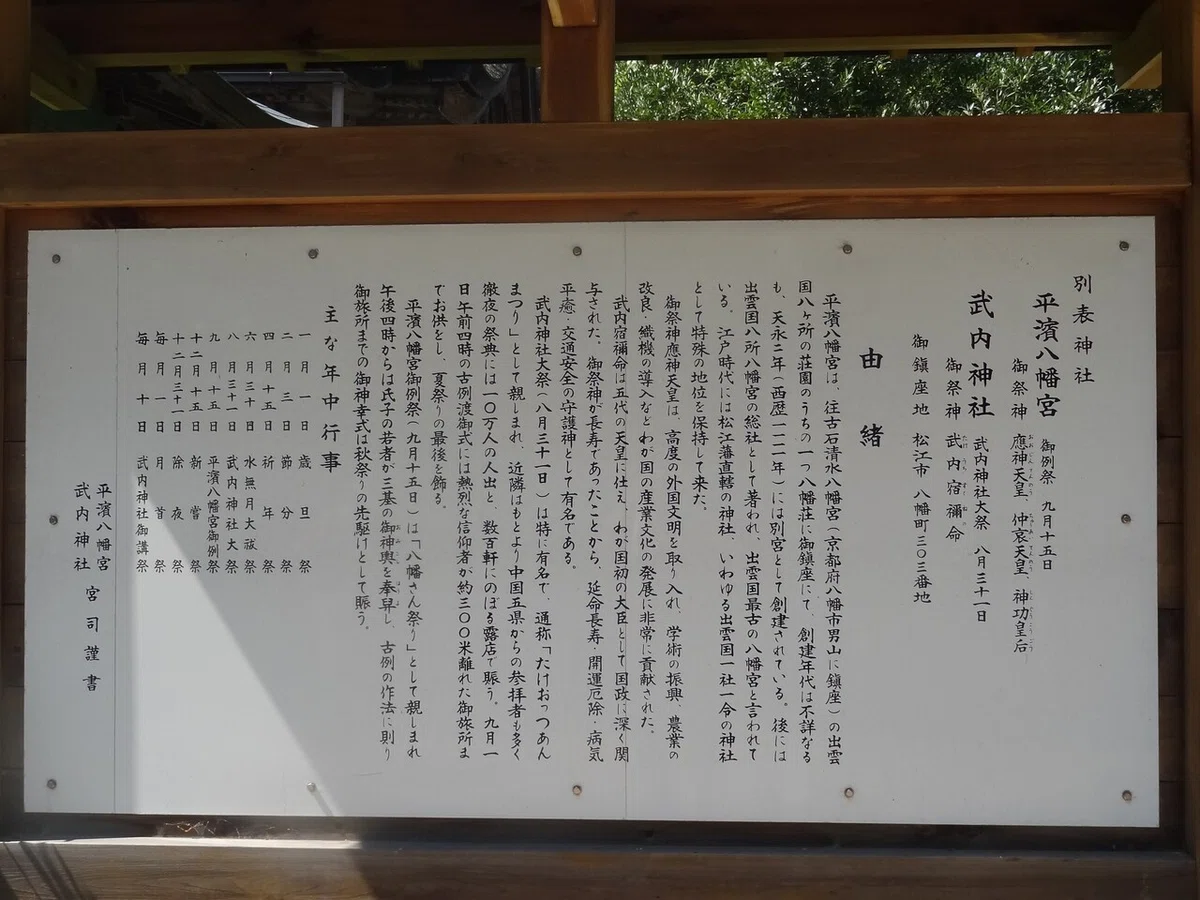 別表神社
平濱八幡宮 御例祭 九月十五日
御祭神 應神天皇、仲哀天皇、神功皇后
武内神社 武内神社大祭 八月三十一日
御祭神 武内宿禰命
御鎮座地 松江市 八幡町三〇三番地
由緒
平濱八幡宮は、往古石清水八幡宮(京都府八幡市男山に鎮座)の出雲
国八ヶ所の荘園のうちの一つ八幡荘に御鎮座にて、創建年代は不詳なる
も、天永二年(西歴一一一一年)には別宮として創建されている。後には
出雲国八所八幡宮の総社として著われ、出雲国最古の八幡宮と言われて
いる。江戸時代には松江藩直轄の神社、いわゆる出雲国一社一令の神社
として特殊の地位を保持して来た。
御祭神應神天皇は、高度の外国文明を取り入れ、学術の振興、農業の
改良・織機の導入などわが国の産業文化の発展に非常に貢献された。
武内宿禰命は五代の天皇に仕え、わが国初の大臣として国政に深く関
与された。御祭神が長寿であったことから、延命長寿・開運厄除・病気
平癒・交通安全の守護神として有名である。
武内神社大祭(八月三十一日)は特に有名で、通称「たけおっつあん
まつり」として親しまれ、近隣はもとより中国五県からの参拝者も多く
徹夜の祭典には一〇万人の人出と、数百軒にのぼる露店で賑う。九月一
日午前四時の古例渡御式には熱烈な信仰者が約三〇〇米離れた御旅所ま
でお供をし、夏祭りの最後を飾る。
平濱八幡宮御例祭(九月十五日)は「八幡さん祭り」として親しまれ
午後四時からは氏子の若者が三基の御神輿を奉舁し、古例の作法に則り
御旅所までの御神幸式は秋祭りの先駆けとして賑う。
主な年中行事
一月一日 歳旦祭
二月三日 節分祭
四月十五日 祈年祭
六月三十日 水無月大祓祭
八月三十一日 武内神社大祭
九月十五日 平濱八幡宮御例祭
十二月十五日 新嘗祭
十二月三十一日 除夜祭
毎月一日 月首祭
毎月十日 武内神社御講祭
平濱八幡宮
武内神社 宮司謹書